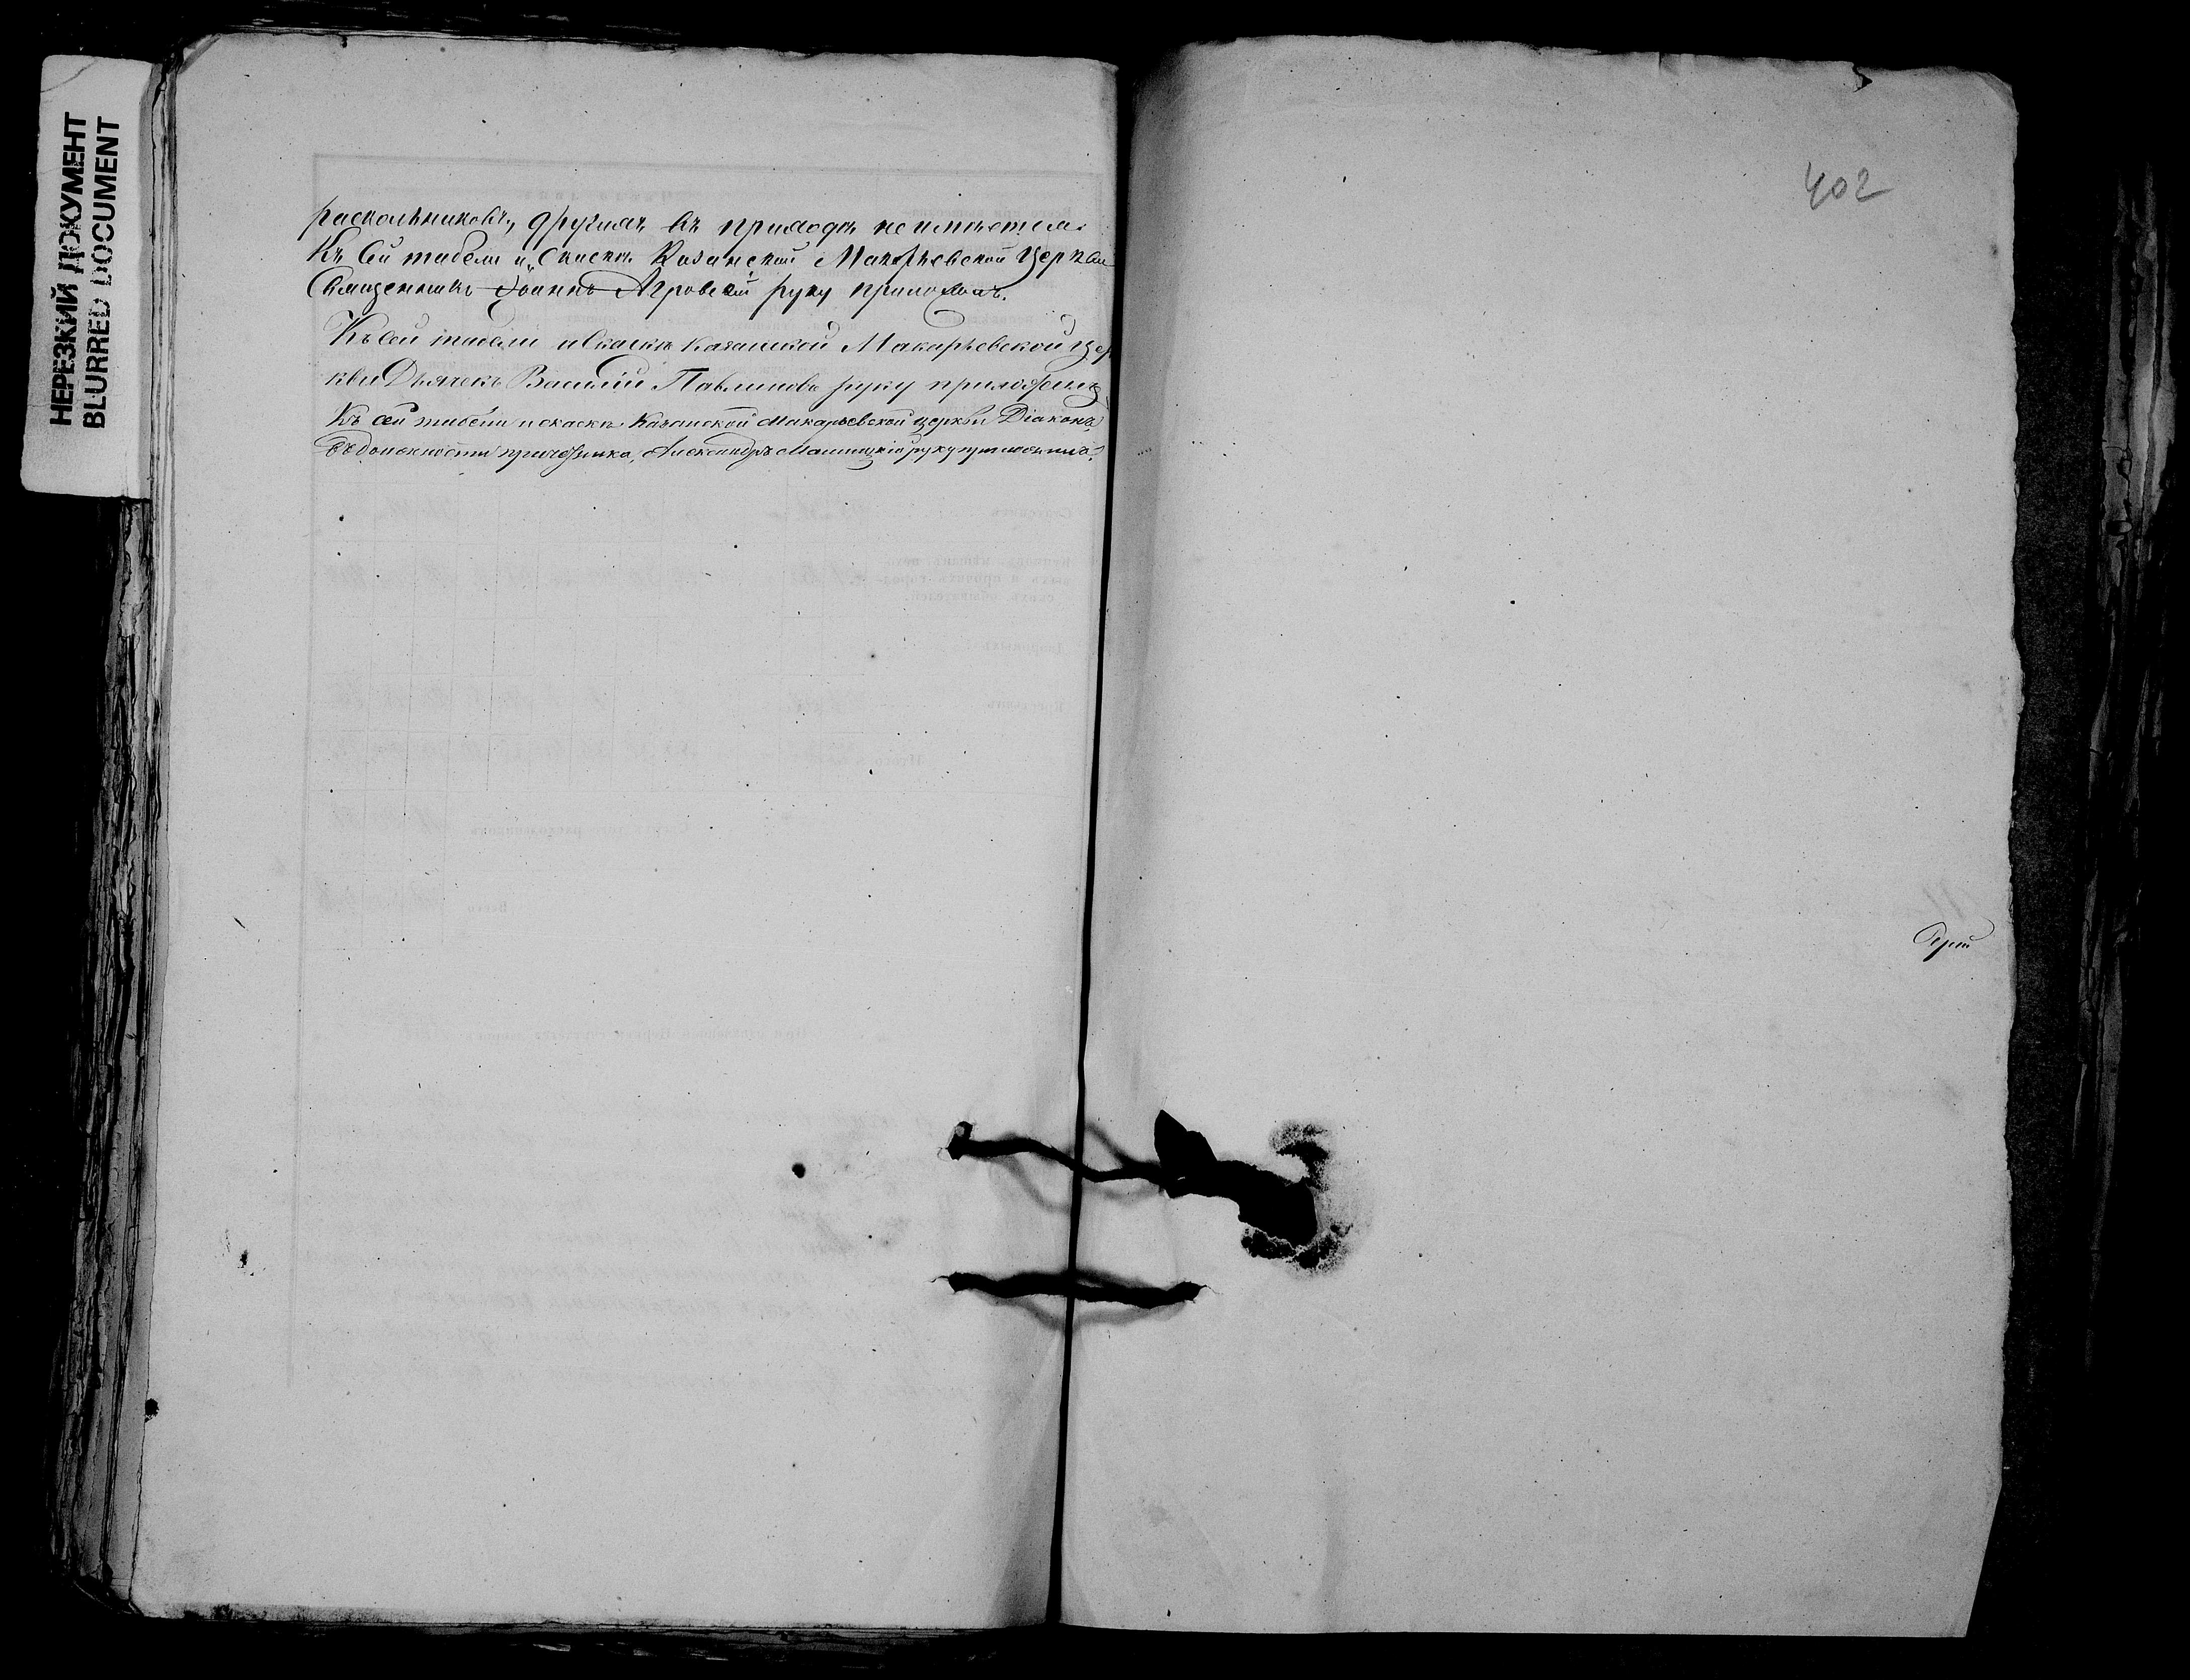 НЕРЕЗКИЙ ДОКУМЕНТ
BLURRED DOCUMENT
раскольниковъ, другихъ въ приходѣ не имѣется.
Къ сей табели и скаскѣ Казанской Макарьевской Церкви
Священникъ Іоаннъ руку приложилъ.
Къ сей табели и скаскѣ Казанской Макарьевской Цер
кви Дьячекъ Василій Павлиновъ руку приложилъ
Къ сей табели и скаскѣ Казанской Макарьевской церкви Діаконъ
въ должности причетника, Александръ руку приложилъ.
402